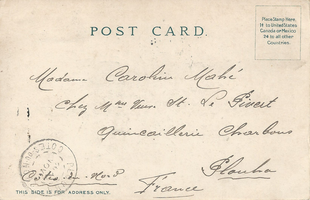 POST CARD.
Place Stamp Here.
1¢ to United States
Canada or Mexico
2¢ to all other
Countries.
Madame Caroline Mahé
Chez Mme St. Le Givert
Quincaillerie Charbons
Plouha
Côtes du Nord
France
THIS SIDE IS FOR ADDRESS ONLY.